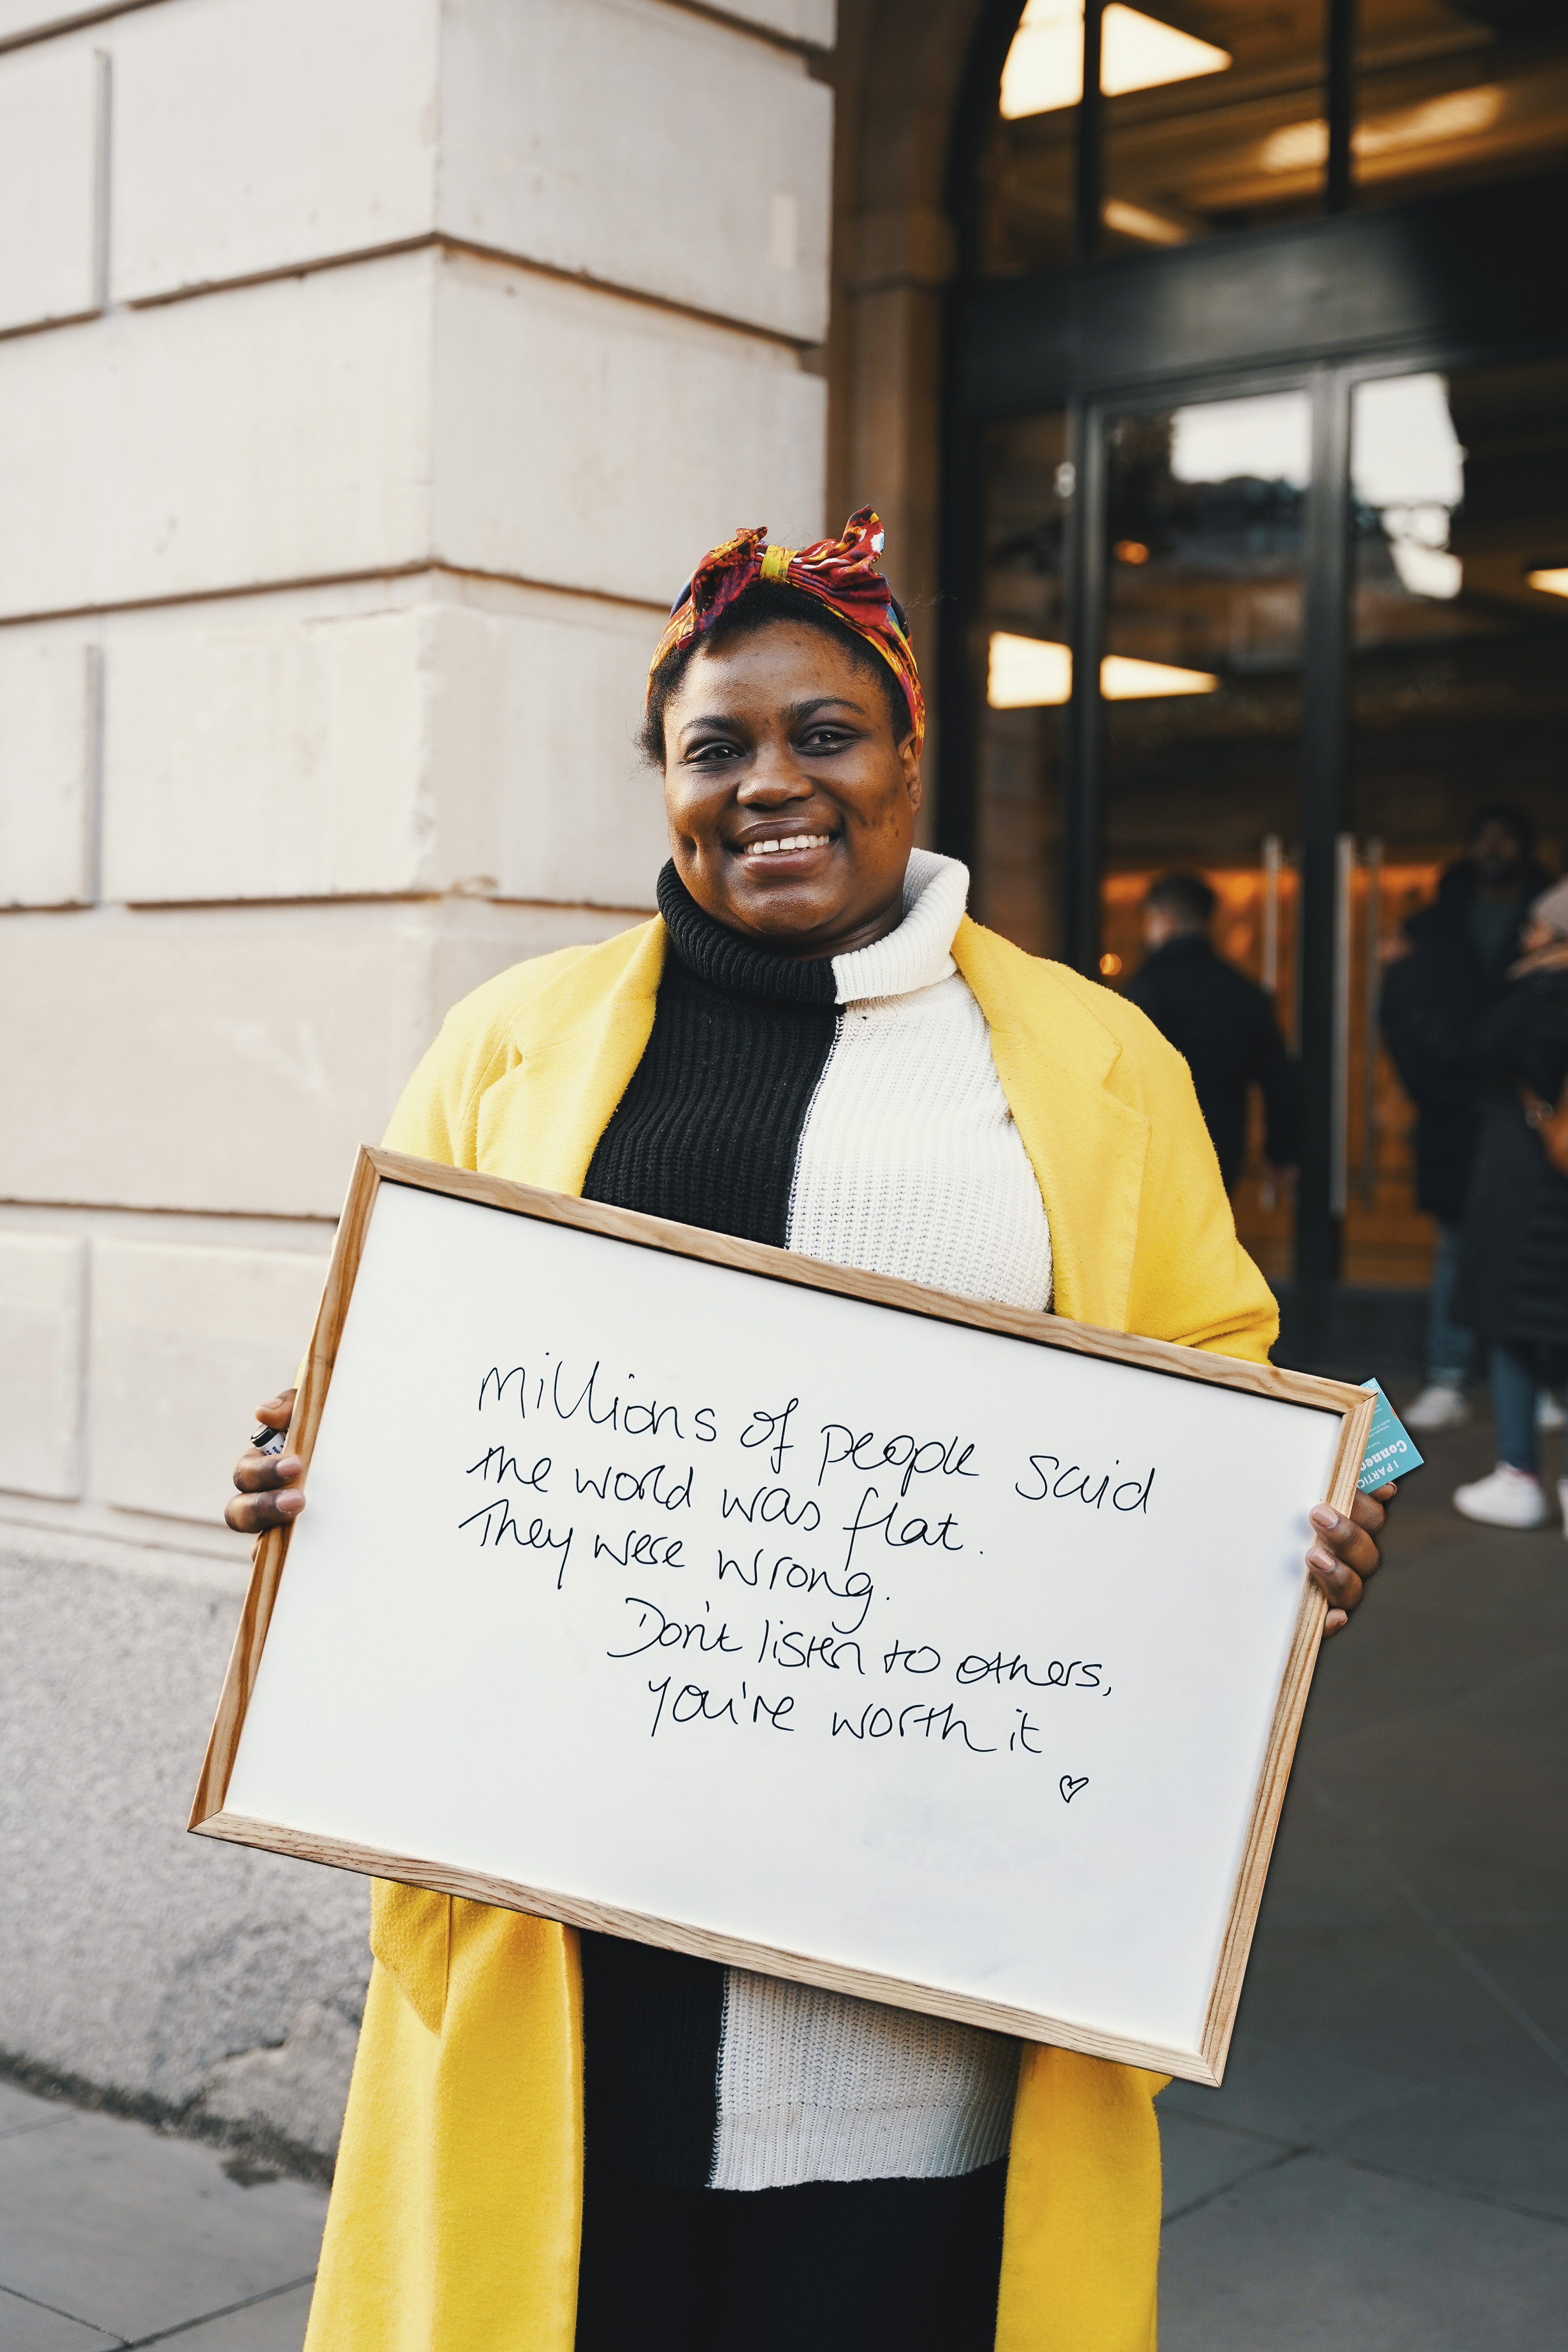 Millions of people said
the world was flat.
They were wrong.
Don't listen to others,
you're worth it
I PARTIC
Conne